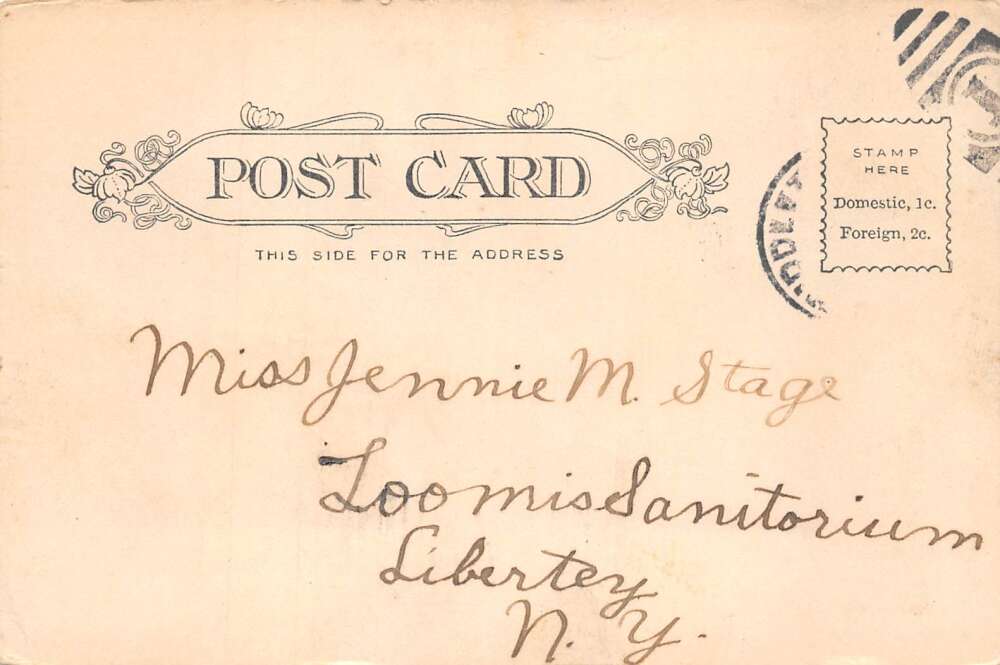 POST CARD
THIS SIDE FOR THE ADDRESS
STAMP
HERE
Domestic, 1c.
Foreign, 2c.
Miss Jennie M. Stage
Loomis Sanitorium
Libertey
N. Y.